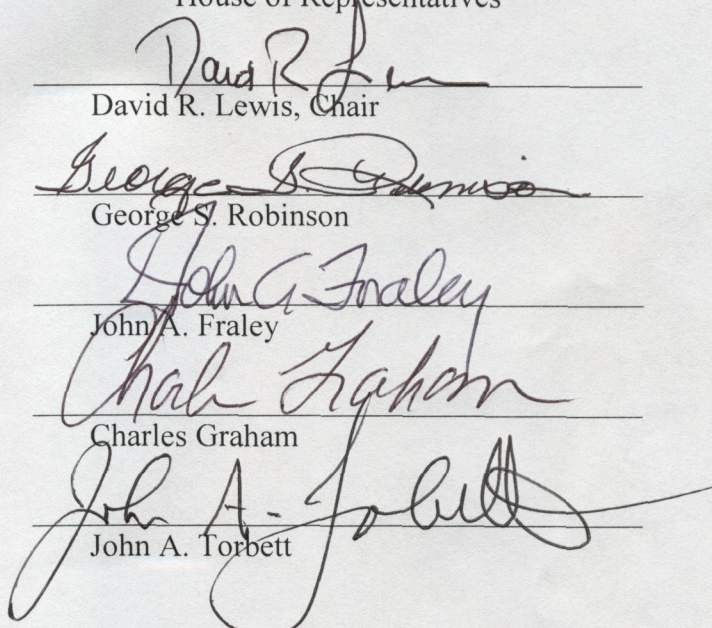 House of Representatives
David R. Lewis
David R. Lewis, Chair
George S. Robinson
George S. Robinson
John A Fraley
John A. Fraley
Charles Graham
Charles Graham
John A. Torbett
John A. Torbett